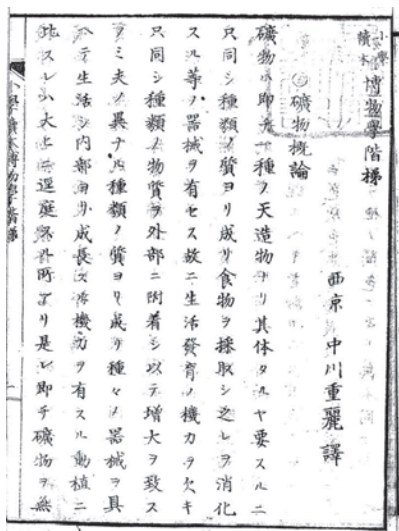 小學讀本 博物學階梯
西京 中川重麗譯
礦物概論
礦物ハ即チ一種ノ天造物ナリ其体タルヤ要スルニ
只同シ種類ノ質ヨリ成リ食物ヲ採取シ之レヲ消化
スル等ノ器械ヲ有セス故ニ生活發育ノ機力ヲ欠キ
只同シ種類ノ物質ヲ外部ニ附着シ以テ增大ヲ致ス
ノミ夫ノ異ナル種類ノ質ヨリ成リ種々ノ器械ヲ具
ヘテ生活シ內部ヨリ成長スル機力ヲ有スル動植ニ
比スレハ大ニ逕庭アル所アリ是レ即チ礦物ヲ無
小學讀本博物學階梯